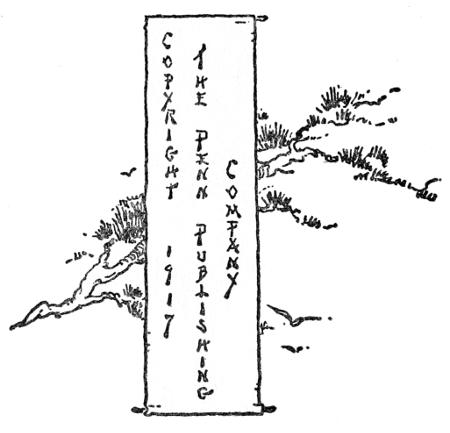 COPYRIGHT 1917
THE PENN PUBLISHING
COMPANY